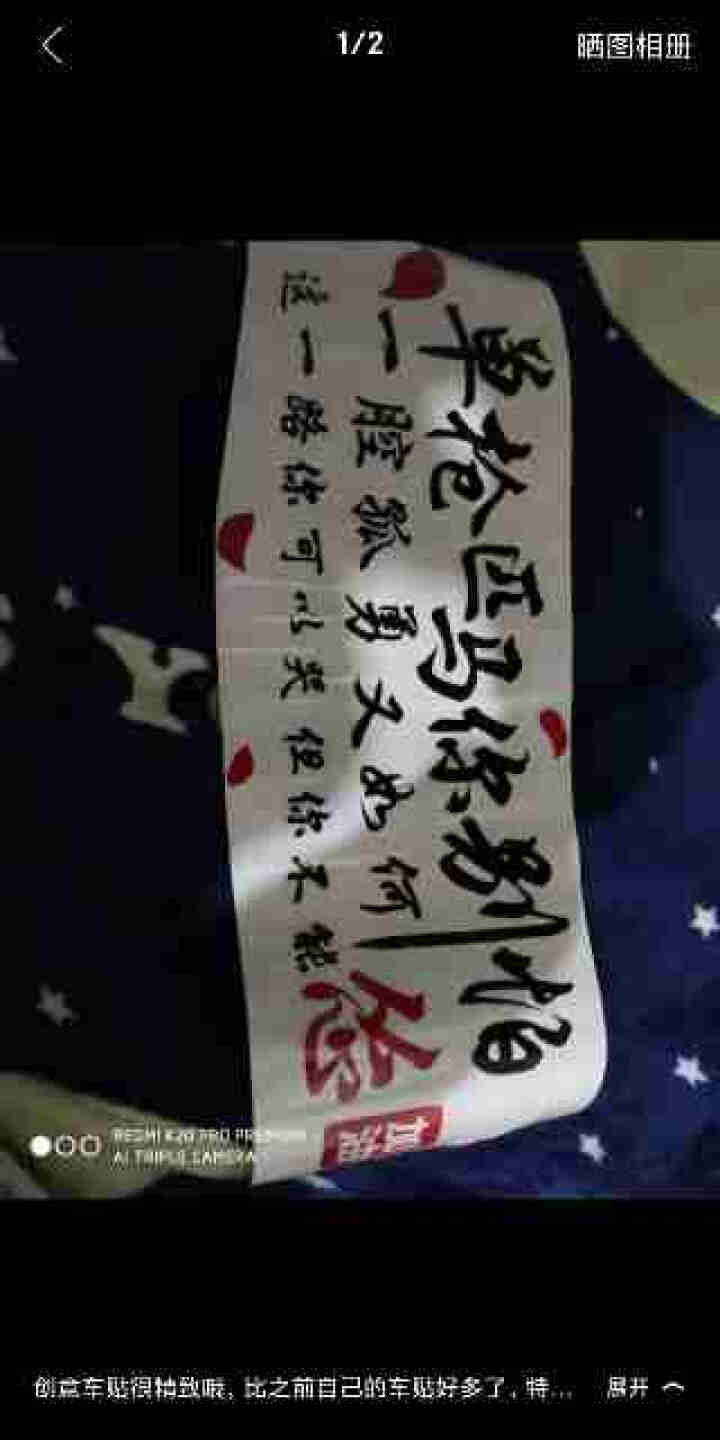 1/2
晒图相册
单枪匹马你别怕
一腔孤勇又如何
这一路你可以哭但你不能
怂
加油
REDMI K20 PRO PREMIUM
AI TRIPLE CAMERA
创意车贴很精致哦，比之前自己的车贴好多了，特...
展开